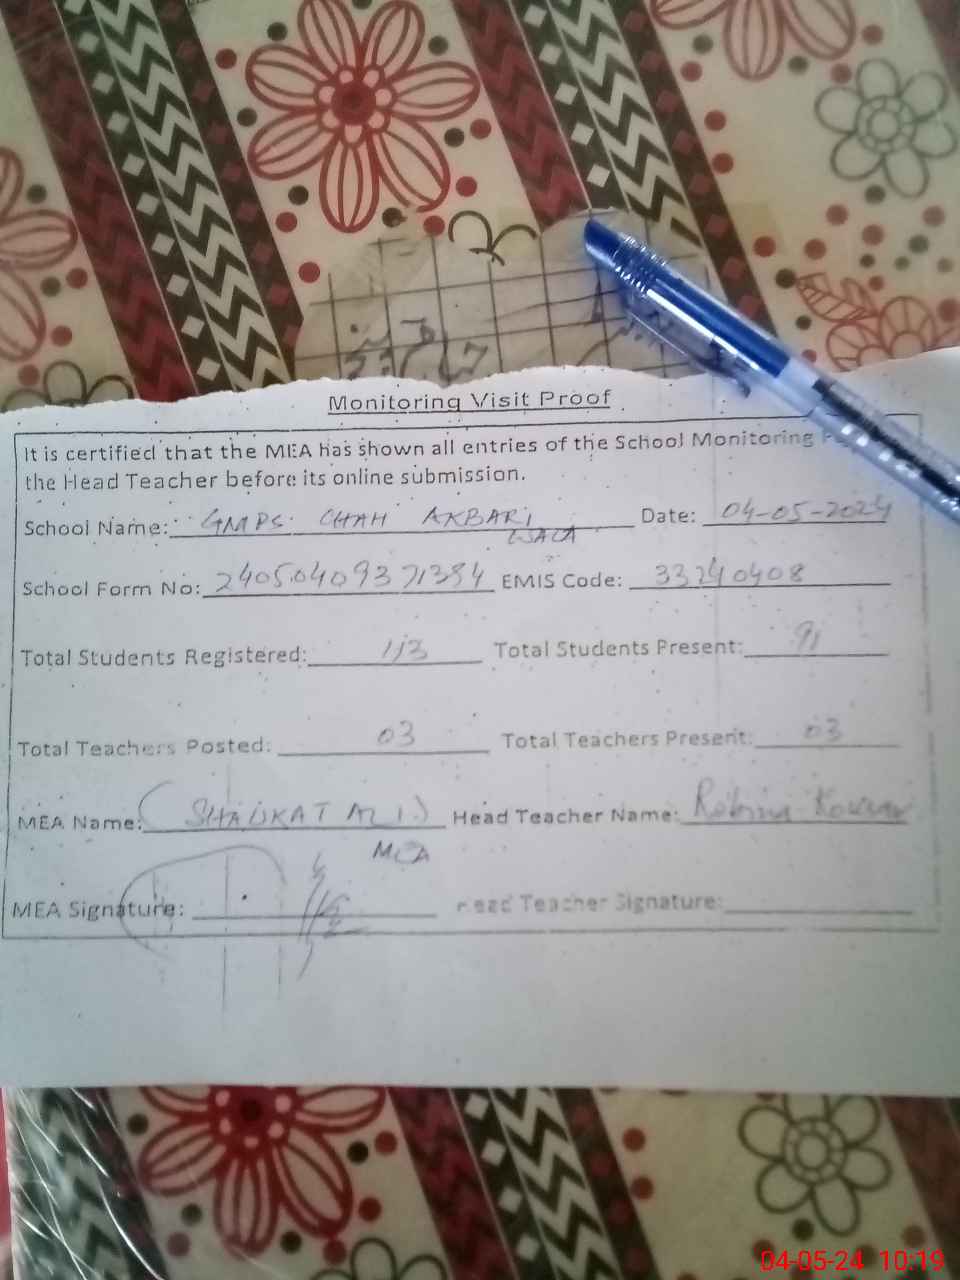 Monitoring Visit Proof
It is certified that the MEA has shown all entries of the School Monitoring
the Head Teacher before its online submission.
School Name: GMPS CHAH AKBARI WALA Date: 04-05-2024
School Form No: EMIS Code: 33240408
Total Students Registered: 113 Total Students Present: 91
Total Teachers Posted: 03 Total Teachers Present: 03
MEA Name: (SHAUKAT ALI) Head Teacher Name: Robina Kousar
MEA
MEA Signature: Head Teacher Signature:
04-05-24 10:19